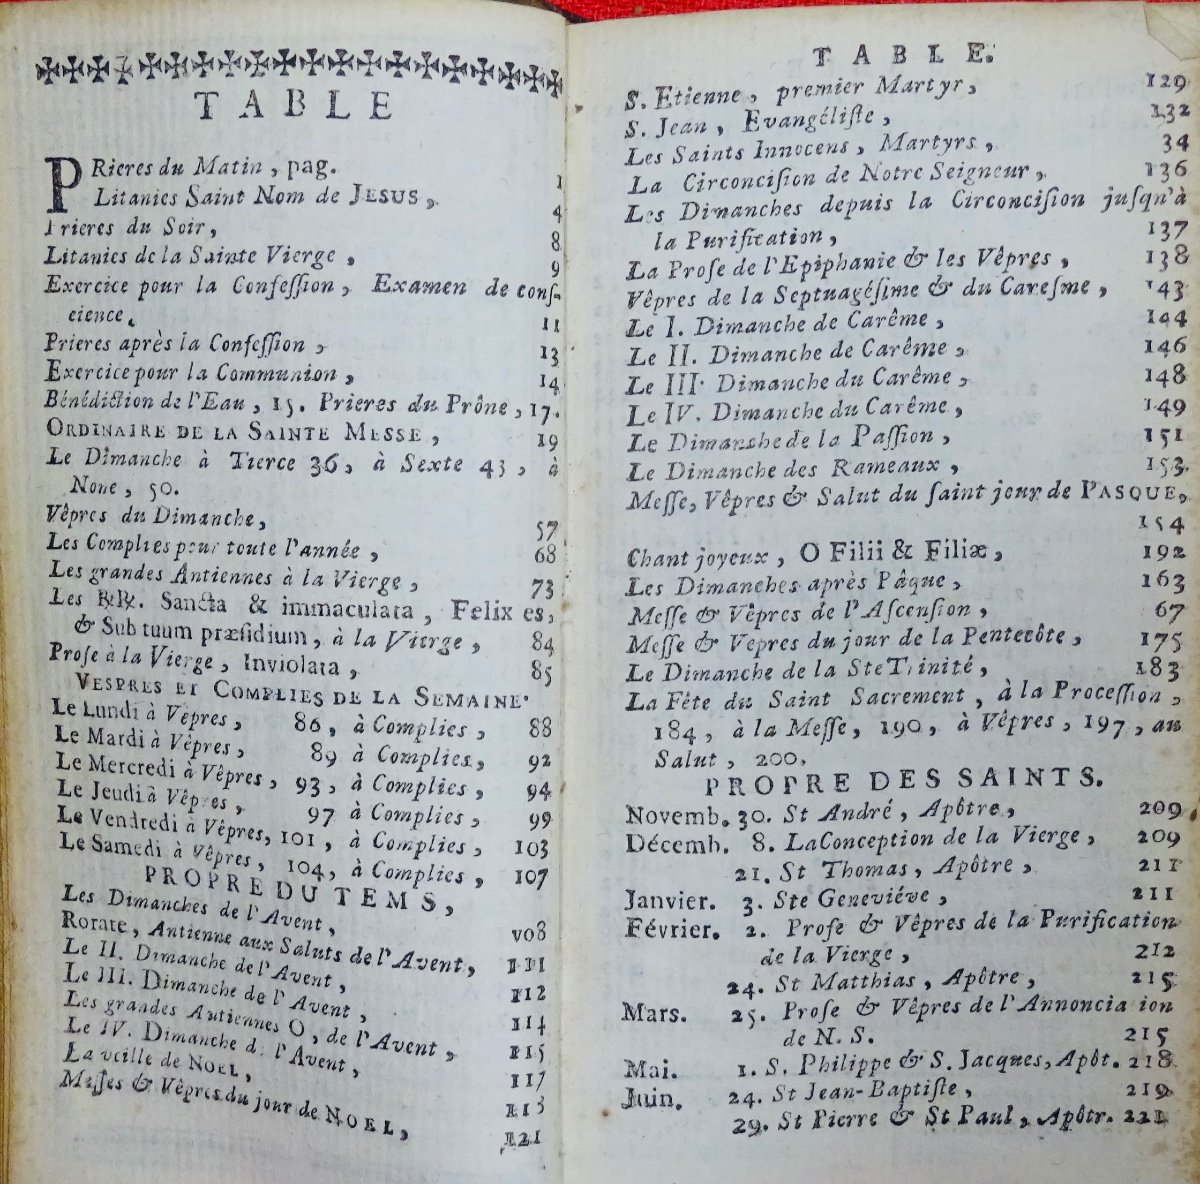 TABLE
PRieres du Matin, pag. 1
Litanies Saint Nom de JESUS, 4
Prieres du Soir, 8
Litanies de la Sainte Vierge, 9
Exercice pour la Confeſſion, Examen de conſ-
cience, 11
Prieres après la Confeſſion, 13
Exercice pour la Communion, 14
Bénédiction de l'Eau, 15. Prieres du Prône, 17.
ORDINAIRE DE LA SAINTE MESSE, 19
Le Dimanche à Tierce 36, à Sexte 43, à
None, 50.
Vêpres du Dimanche, 57
Les Complies pour toute l'année, 68
Les grandes Antiennes à la Vierge, 73
Les ℟℟. Sancta & immaculata, Felix es,
& Sub tuum præſidium, à la Vierge, 84
Proſe à la Vierge, Inviolata, 85
VESPRES ET COMPLIES DE LA SEMAINE.
Le Lundi à Vêpres, 86, à Complies, 88
Le Mardi à Vêpres, 89 à Complies, 92
Le Mercredi à Vêpres, 93, à Complies, 94
Le Jeudi à Vêpres, 97 à Complies, 99
Le Vendredi à Vêpres, 101, à Complies, 103
Le Samedi à Vêpres, 104, à Complies, 107
PROPRE DU TEMS,
Les Dimanches de l'Avent, v08
Rorate, Antienne aux Saluts de l'Avent, 111
Le II. Dimanche de l'Avent, 112
Le III. Dimanche de l'Avent, 114
Les grandes Antiennes O, de l'Avent, 115
Le IV. Dimanche de l'Avent, 117
La veille de NOEL, 118
Meſſes & Vêpres du jour de NOEL, 121
TABLE.
S. Etienne, premier Martyr, 129
S. Jean, Evangéliſte, 132
Les Saints Innocens, Martyrs, 34
La Circonciſion de Notre Seigneur, 136
Les Dimanches depuis la Circonciſion juſqu'à
la Purification, 137
La Proſe de l'Epiphanie & les Vêpres, 138
Vêpres de la Septuagéſime & du Careſme, 143
Le I. Dimanche de Carême, 144
Le II. Dimanche de Carême, 146
Le III. Dimanche du Carême, 148
Le IV. Dimanche du Carême, 149
Le Dimanche de la Paſſion, 151
Le Dimanche des Rameaux, 153
Meſſe, Vêpres & Salut du ſaint jour de PASQUE,
154
Chant joyeux, O Filii & Filiæ, 192
Les Dimanches après Pâque, 163
Meſſe & Vêpres de l'Aſcenſion, 67
Meſſe & Vepres du jour de la Pentecôte, 175
Le Dimanche de la Ste Trinité, 183
La Fête du Saint Sacrement, à la Proceſſion,
184, à la Meſſe, 190, à Vêpres, 197, au
Salut, 200.
PROPRE DES SAINTS.
Novemb. 30. St André, Apôtre, 209
Décemb. 8. La Conception de la Vierge, 209
21. St Thomas, Apôtre, 211
Janvier. 3. Ste Geneviéve, 211
Février. 2. Proſe & Vêpres de la Purification
de la Vierge, 212
24. St Matthias, Apôtre, 215
Mars. 25. Proſe & Vêpres de l'Annoncia ion
de N. S. 215
Mai. 1. S. Philippe & S. Jacques, Apôt. 218
Juin. 24. St Jean-Baptiſte, 219
29. St Pierre & St Paul, Apôtr. 221